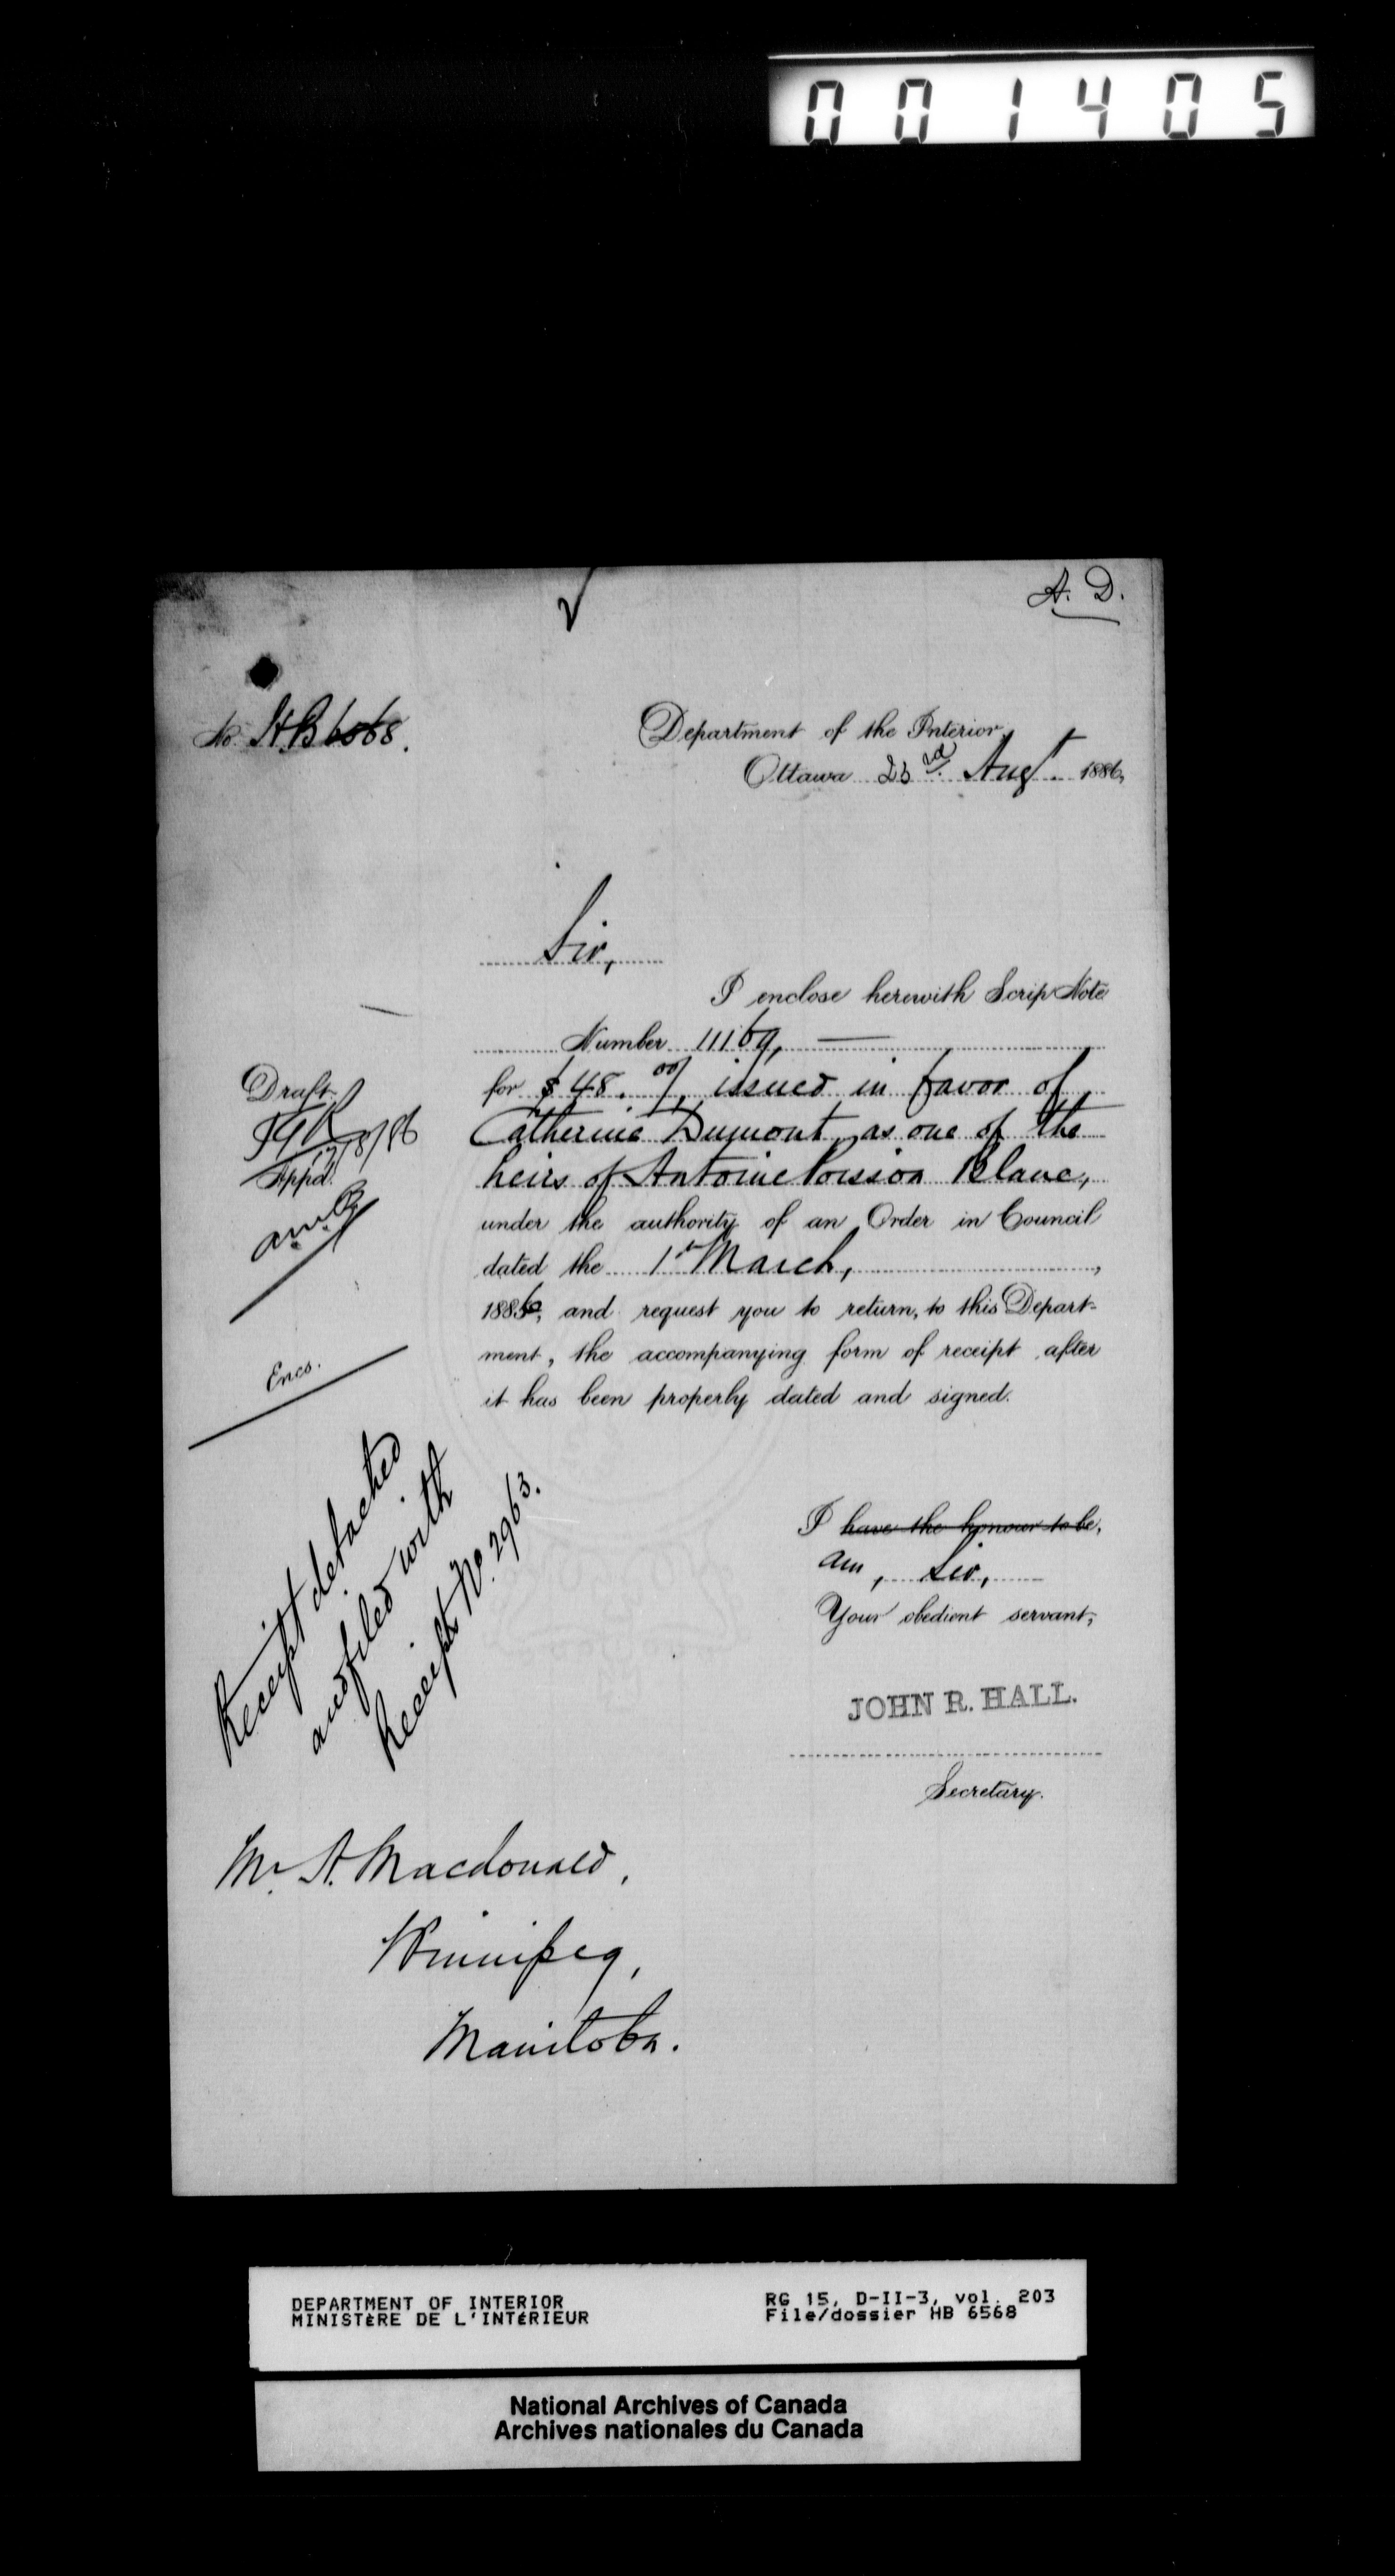 001405
A. D.
No HB 6568.
Department of the Interior,
Ottawa 23rd Augt. 1886,
Sir,
I enclose herewith Scrip Note
Number 11169,
for $48.00/, issued in favor of
Catherine Dumont, as one of the
heirs of Antoine Poisson Blanc,
under the authority of an Order in Council
dated the 1st March,
1886, and request you to return, to this Depart-
ment, the accompanying form of receipt after
it has been properly dated and signed.
Draft
17/8/86
Appd.
Encs.
Receipt detached
and filed with
Receipt No. 2963.
I have the honour to be,
am, Sir,
Your obedient servant,
JOHN R. HALL.
Secretary.
Mr. A. Macdonald,
Winnipeg,
Manitoba.
DEPARTMENT OF INTERIOR
MINISTÈRE DE L'INTÉRIEUR
RG 15, D-II-3, vol. 203
File/dossier HB 6568
National Archives of Canada
Archives nationales du Canada